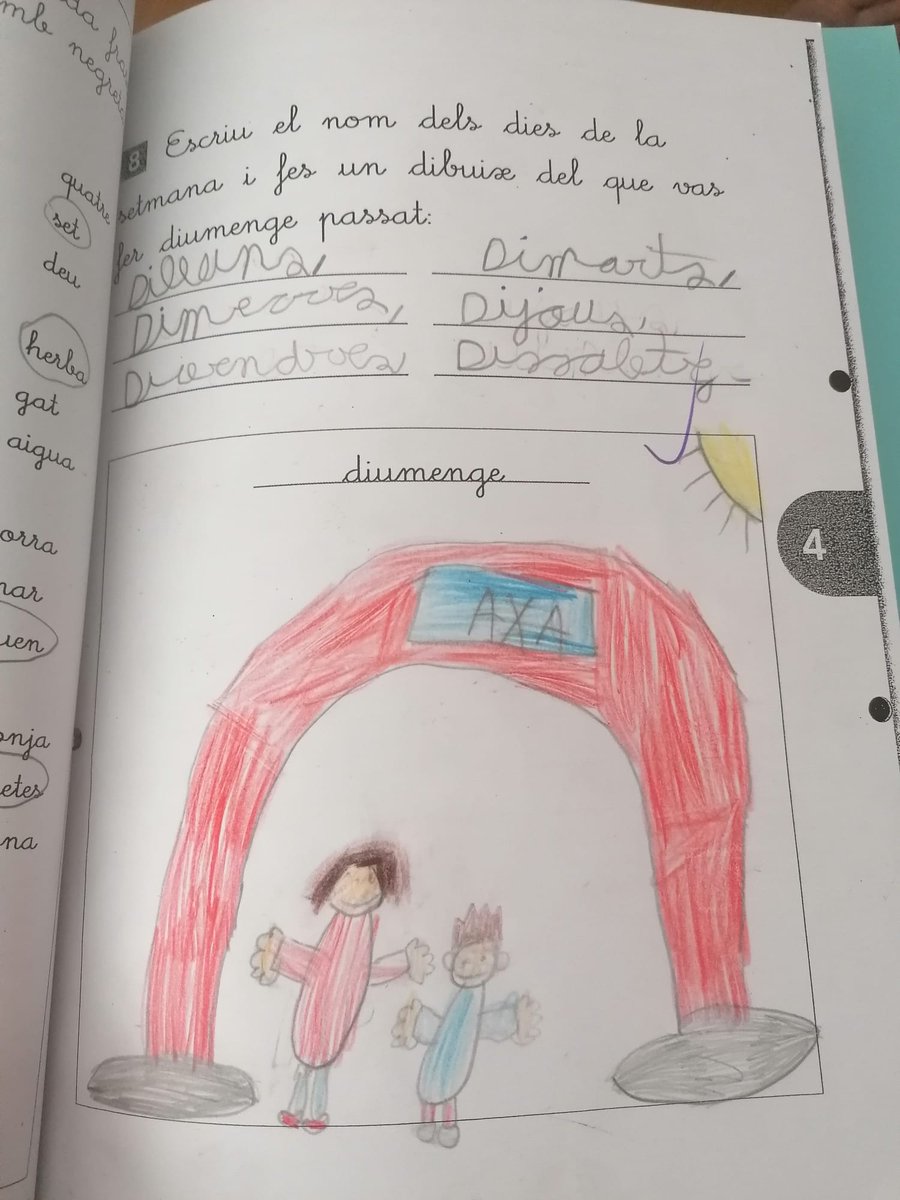 quatre
set
deu
herba
gat
aigua
orra
uen
onja
etes
na
8 Escriu el nom dels dies de la
setmana i fes un dibuix del que vas
fer diumenge passat:
Dilluns, Dimarts,
Dimecres, Dijous,
Divendres,
diumenge
AXA
4